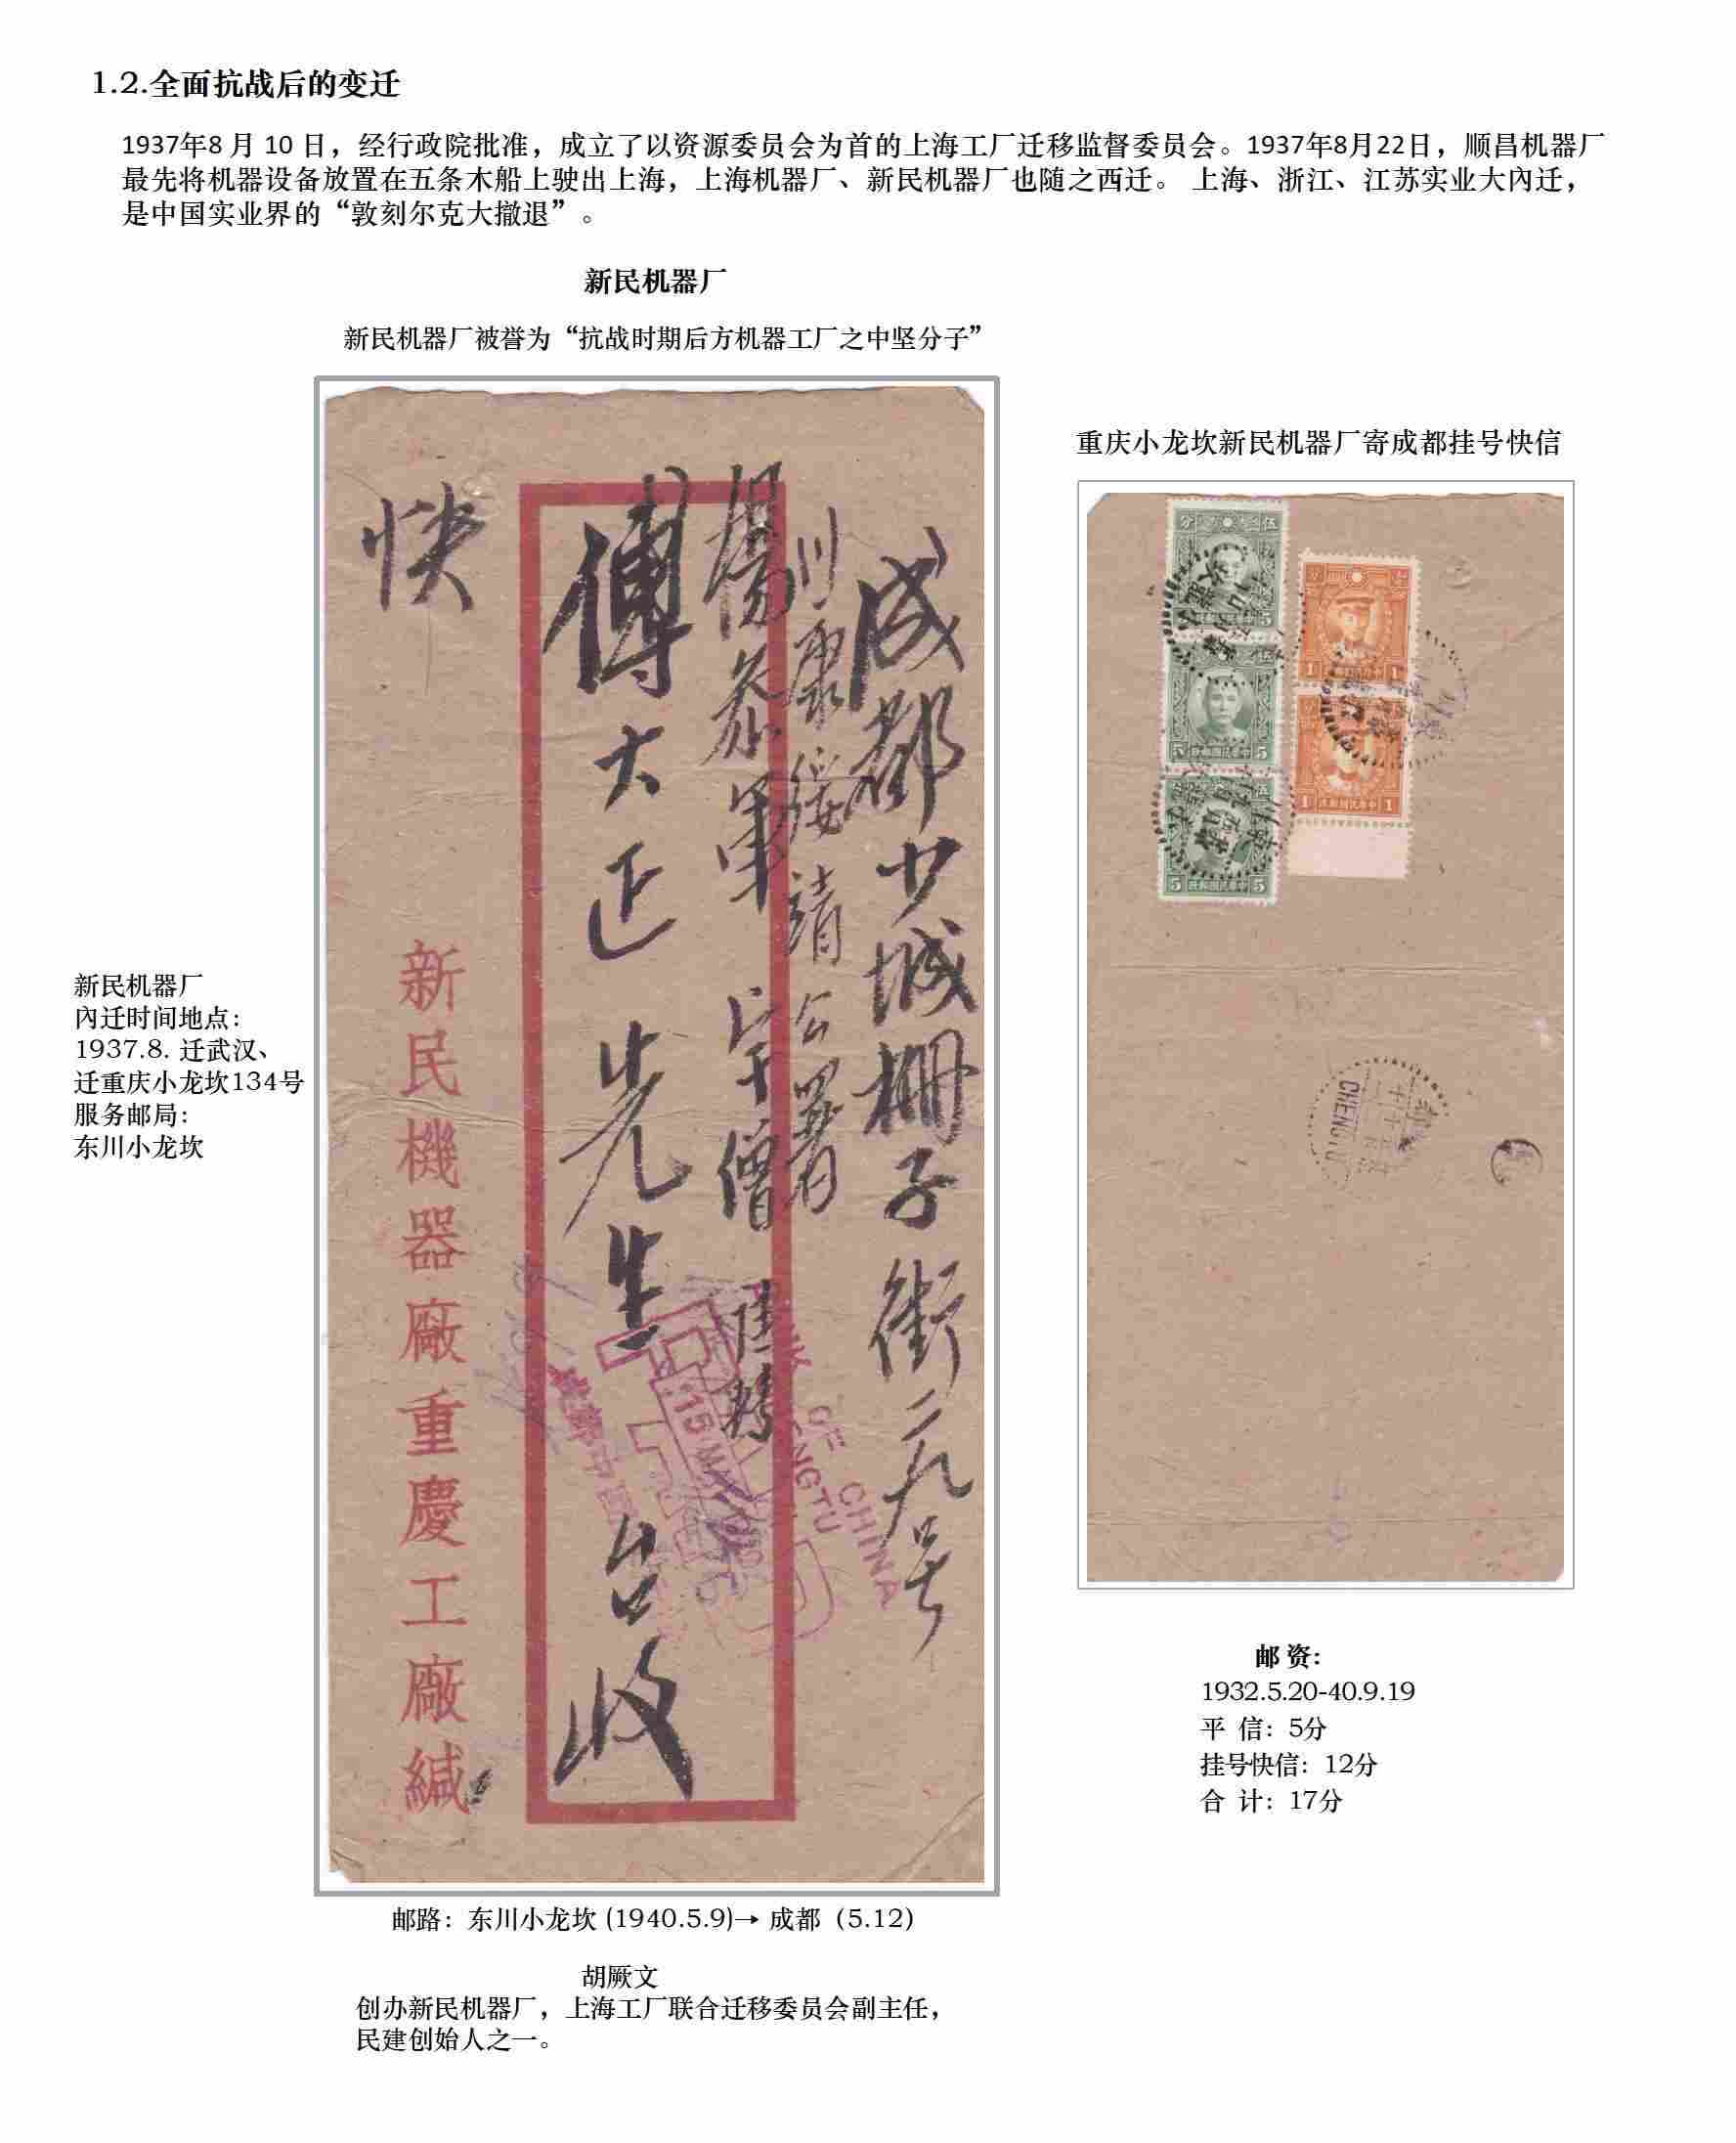 1.2.全面抗战后的变迁
1937年8 月 10 日，经行政院批准，成立了以资源委员会为首的上海工厂迁移监督委员会。1937年8月22日，顺昌机器厂
最先将机器设备放置在五条木船上驶出上海，上海机器厂、新民机器厂也随之西迁。 上海、浙江、江苏实业大內迁，
是中国实业界的“敦刻尔克大撤退”。
新民机器厂
新民机器厂被誉为“抗战时期后方机器工厂之中坚分子”
成都少城栅子街二九号
川康綏靖公署
楊參軍
傅大正先生台收
快
新民機器廠重慶工廠緘
BANK OF CHINA
CHENGTU
15 MAY 1940
新民机器厂
內迁时间地点：
1937.8. 迁武汉、
迁重庆小龙坎134号
服务邮局：
东川小龙坎
重庆小龙坎新民机器厂寄成都挂号快信
伍 分
5
5 中華民國郵政 5
5 中華民國郵政 5
1 1
1 中華民國郵政 1
CHENGTU
邮 资：
1932.5.20-40.9.19
平 信：5分
挂号快信：12分
合 计：17分
邮路：东川小龙坎 (1940.5.9)→ 成都（5.12）
胡厥文
创办新民机器厂，上海工厂联合迁移委员会副主任，
民建创始人之一。